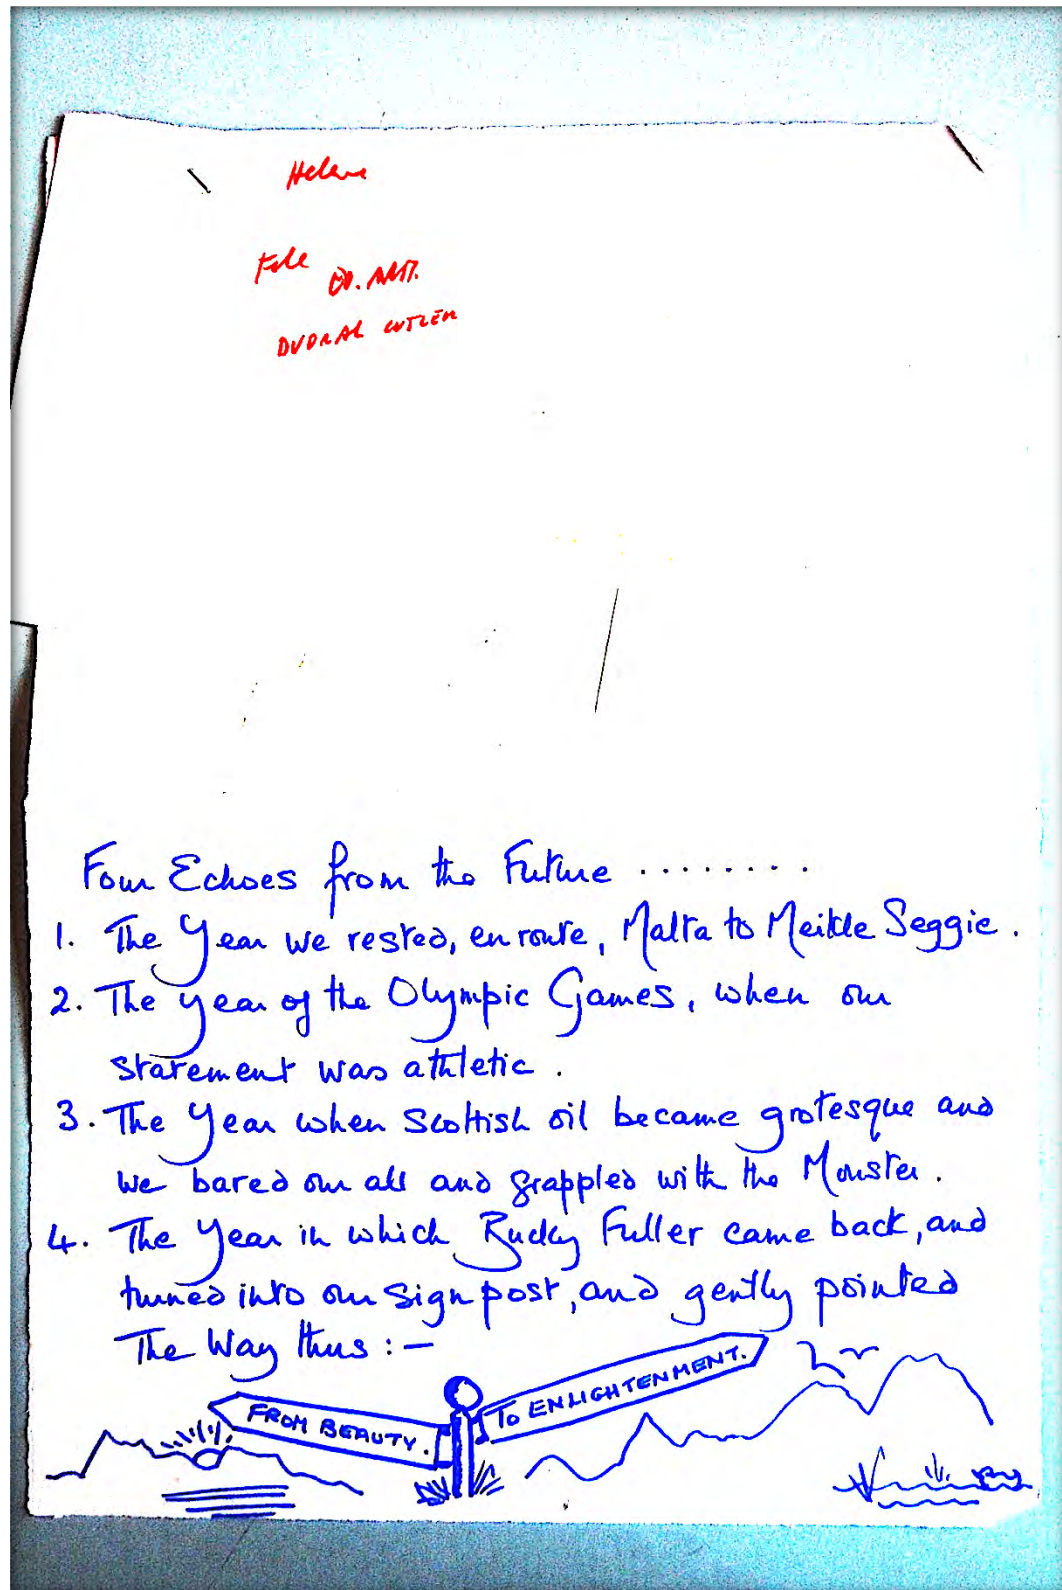 Helen
File ED. ARTS.
CUTLER
Four Echoes from the Future ........
1. The Year we rested, en route, Malta to Meikle Seggie.
2. The year of the Olympic Games, when our
statement was athletic.
3. The Year when Scottish oil became grotesque and
we bared our all and grappled with the Monster.
4. The Year in which Bucky Fuller came back, and
turned into our signpost, and gently pointed
The Way thus :—
FROM BEAUTY.
TO ENLIGHTENMENT.